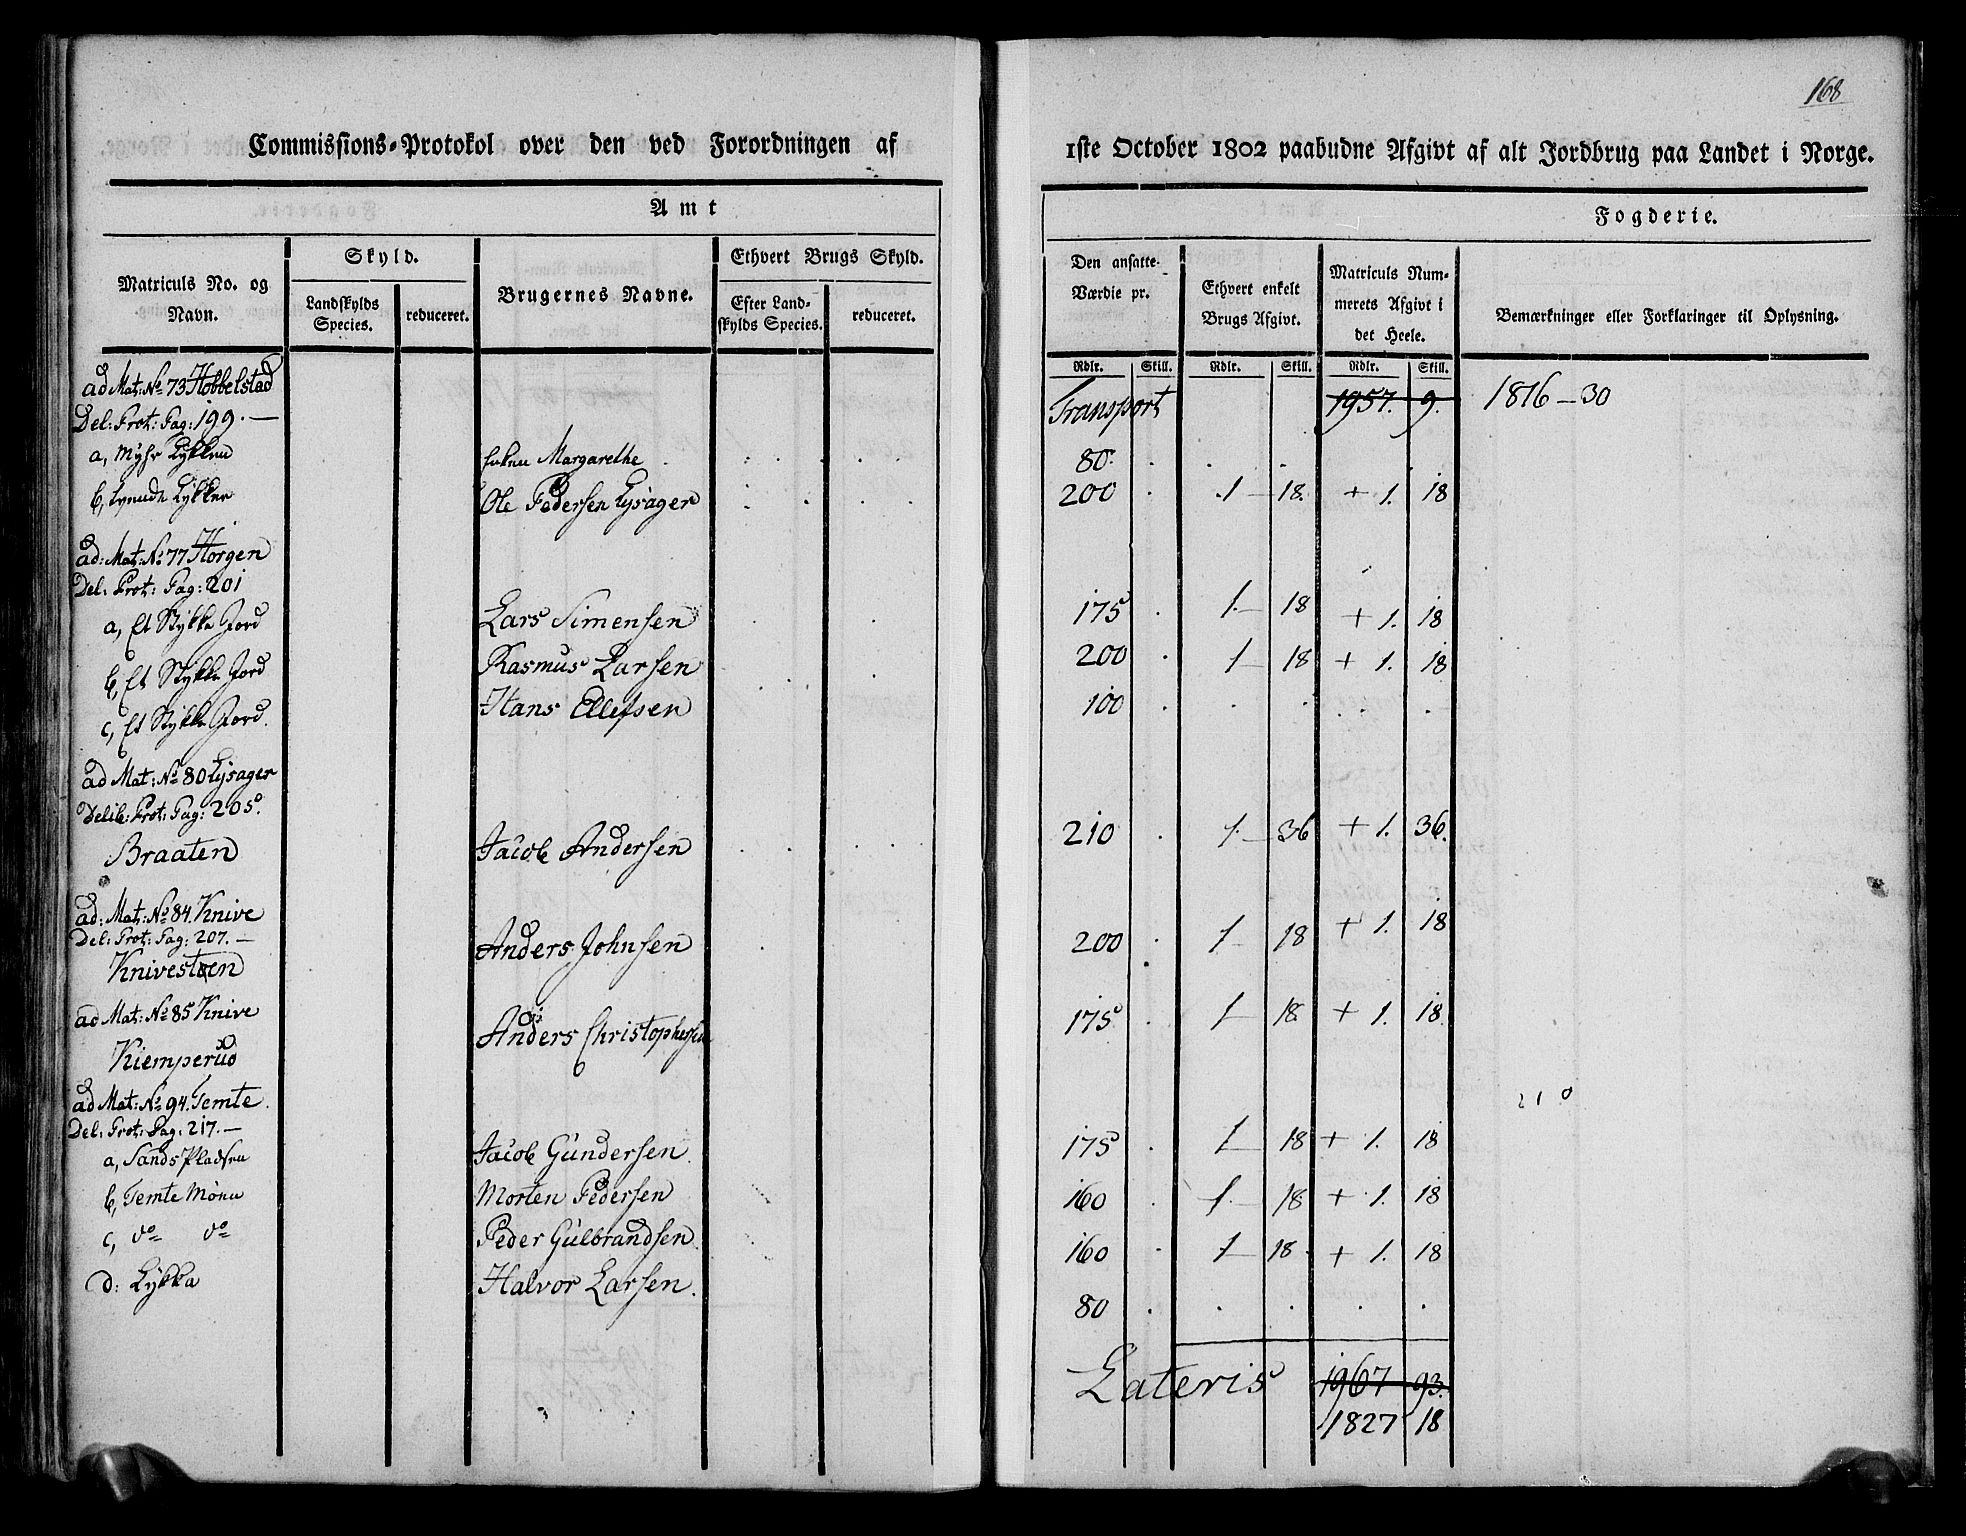 168
Commissions-Protokol over den ved Forordningen af 1ste October 1802 paabudne Afgivt af alt Jordbrug paa Landet i Norge.
Amt Fogderie.
Matriculs No. og Navn.
Skyld.
Landskylds Species.
reduceret.
Brugernes Navne.
Ethvert Brugs Skyld.
Efter Landskylds Species.
reduceret.
Den ansatte Værdie pr.
Ethvert enkelt Brugs Afgivt.
Matriculs Nummerets Afgivt i det Heele.
Bemærkninger eller Forklaringer til Oplysning.
Rdlr. Skill. Rdlr. Skill. Rdlr. Skill.
ad Mat: No 73 Hobbelstad Transport 1957. 9. 1816-30
Del: Prot: Pag: 199.—
a, Myhr Lykken Margarethe 80.
b, Lykken Ole Pedersen Lysager 200 1 18. + 1. 18
ad: Mat: No 77 Horgen
Del: Prot: Pag: 201
a, Et Stykke Jord Lars Simensen 175 1. 18 + 1. 18
b, Et Stykke Jord Rasmus Larsen 200 1 18 + 1. 18
c, Et Stykke Jord. Hans Ellefsen 100
ad Mat: No 80 Lysager
Delib: Prot: Pag: 205.
Braaten Jacob Andersen 210 1. 36 + 1. 36.
ad: Mat: No 84. Knive
Del: Prot: Pag: 207.—
Knivestøen Anders Johnsen 200 1 18 + 1. 18
ad Mat: No 85 Knive
Kiemperud Anders Christophersen 175 1 18 + 1. 18.
ad Mat: No 94. Temte 210
Del: Prot: Pag: 217.—
a, Sands Pladsen Jacob Gundersen 175 1 18 + 1. 18
b, Temte Moen Morten Pedersen 160 1. 18 + 1. 18
c, do do Peder Gulbrandsen. 160 1 18 + 1. 18
d: Lykka Halvor Larsen. 80
Lateris 1967 93.
1827 18